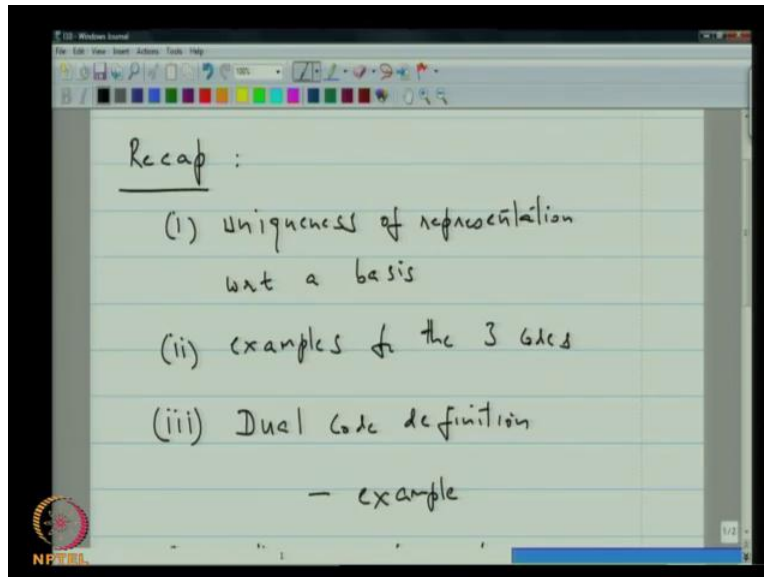 L10 - Windows Journal
File Edit View Insert Actions Tools Help
100%
B I
Recap :
(1) uniqueness of representation
wrt a basis
(ii) examples for the 3 codes
(iii) Dual Code definition
– example
1/2
1
NPTEL